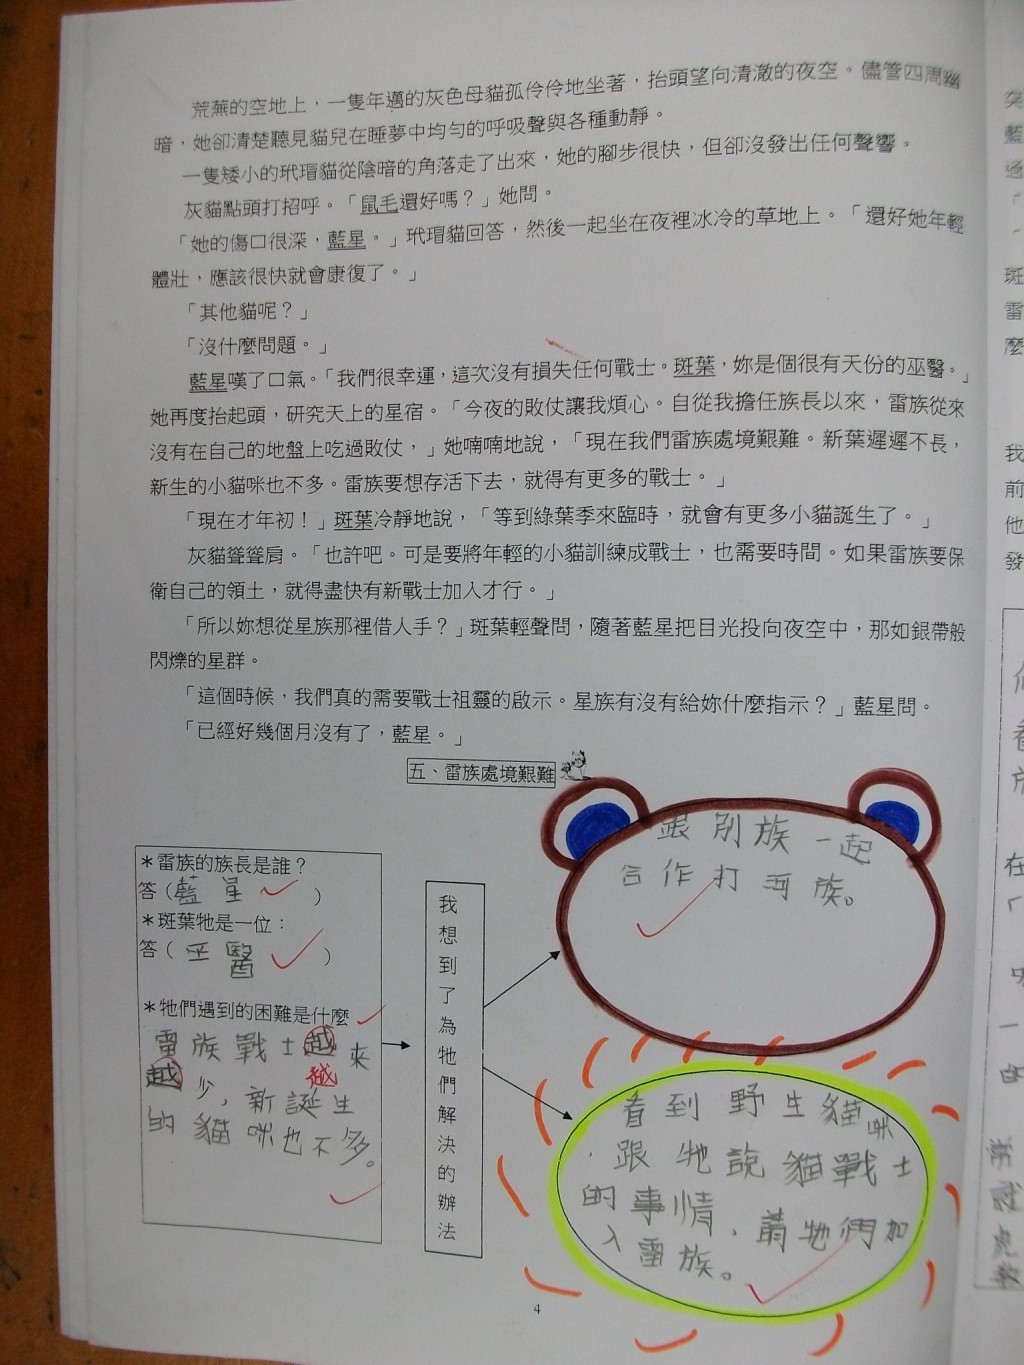 荒蕪的空地上，一隻年邁的灰色母貓孤伶伶地坐著，抬頭望向清澈的夜空。儘管四周幽
暗，她卻清楚聽見貓兒在睡夢中均勻的呼吸聲與各種動靜。
一隻矮小的玳瑁貓從陰暗的角落走了出來，她的腳步很快，但卻沒發出任何聲響。
灰貓點頭打招呼。「鼠毛還好嗎？」她問。
「她的傷口很深，藍星。」玳瑁貓回答，然後一起坐在夜裡冰冷的草地上。「還好她年輕
體壯，應該很快就會康復了。」
「其他貓呢？」
「沒什麼問題。」
藍星嘆了口氣。「我們很幸運，這次沒有損失任何戰士。斑葉，妳是個很有天份的巫醫。」
她再度抬起頭，研究天上的星宿。「今夜的敗仗讓我煩心。自從我擔任族長以來，雷族從來
沒有在自己的地盤上吃過敗仗，」她喃喃地說，「現在我們雷族處境艱難。新葉遲遲不長，
新生的小貓咪也不多。雷族要想存活下去，就得有更多的戰士。」
「現在才年初！」斑葉冷靜地說，「等到綠葉季來臨時，就會有更多小貓誕生了。」
灰貓聳聳肩。「也許吧。可是要將年輕的小貓訓練成戰士，也需要時間。如果雷族要保
衛自己的領土，就得盡快有新戰士加入才行。」
「所以妳想從星族那裡借人手？」斑葉輕聲問，隨著藍星把目光投向夜空中，那如銀帶般
閃爍的星群。
「這個時候，我們真的需要戰士祖靈的啟示。星族有沒有給妳什麼指示？」藍星問。
「已經好幾個月沒有了，藍星。」
五、雷族處境艱難
＊雷族的族長是誰？
答（藍星）
＊斑葉牠是一位：
答（巫醫）
＊牠們遇到的困難是什麼
雷族戰士越來
越
越少，新誕生
的貓咪也不多。
我想到了為牠們解決的辦法
跟別族一起
合作打河族。
看到野生貓咪
跟牠說貓戰士
的事情，請牠們加
入雷族。
4